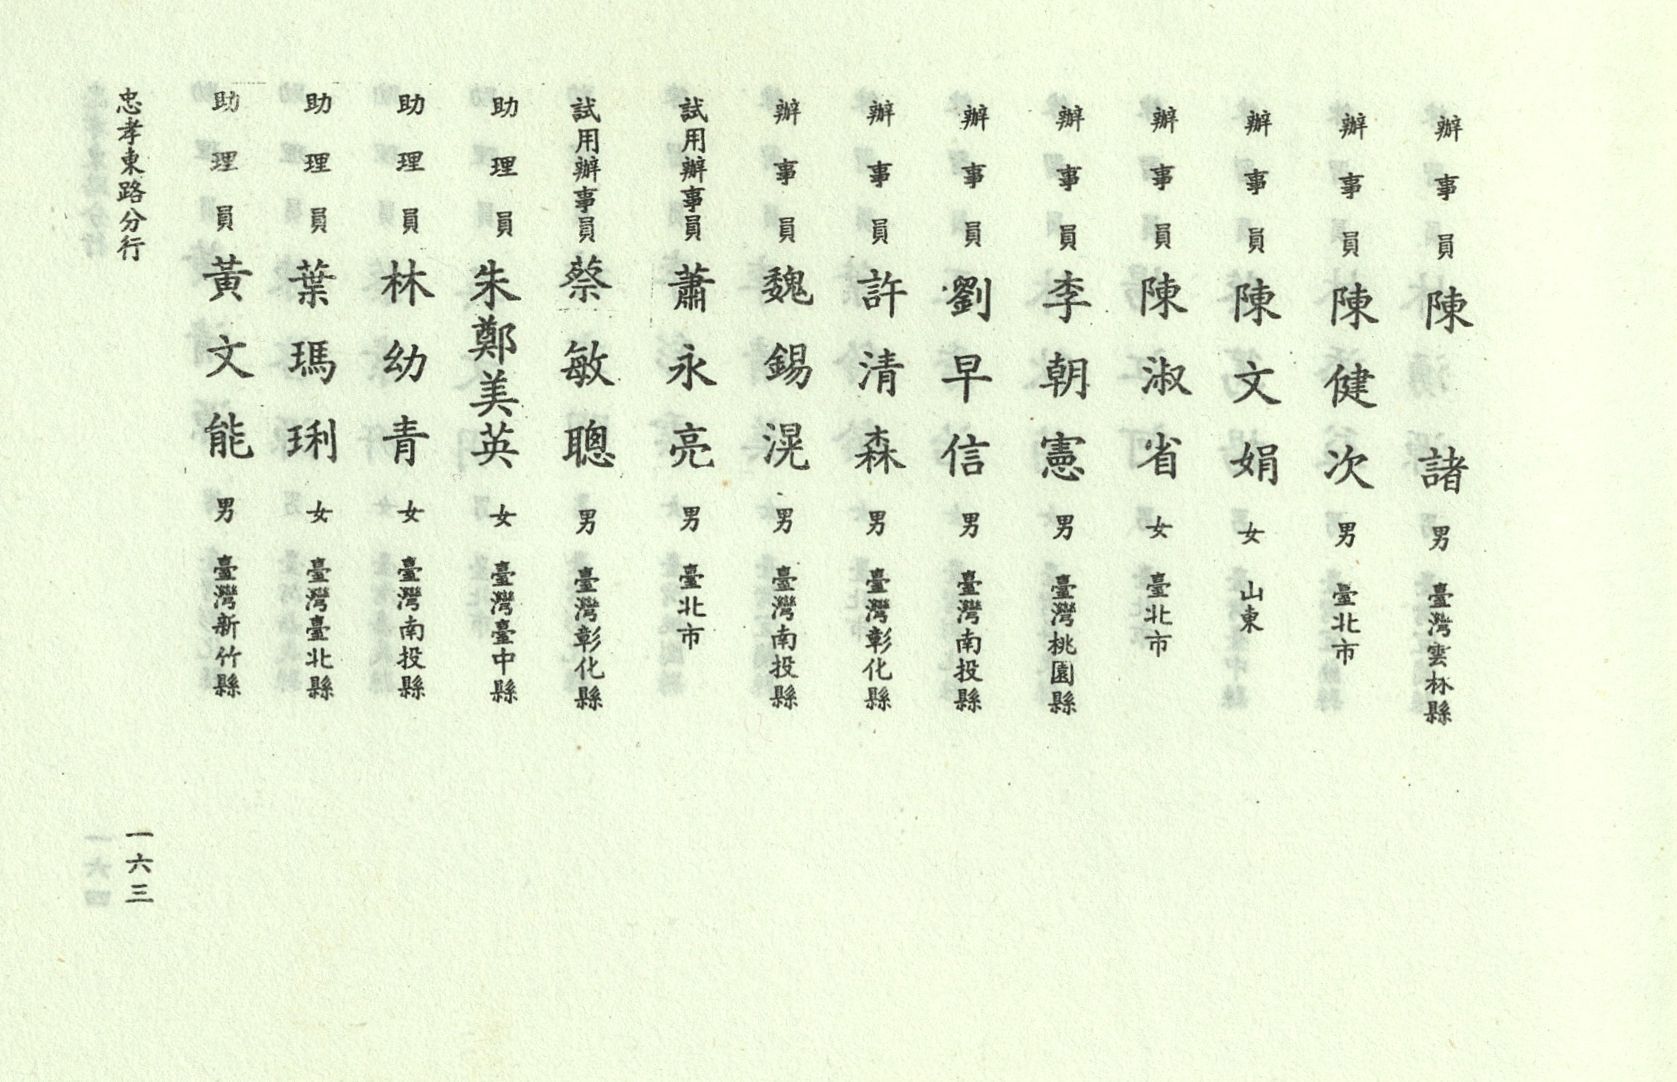 辦事員 陳諸 男 臺灣雲林縣
辦事員 陳健次 男 臺北市
辦事員 陳文娟 女 山東
辦事員 陳淑省 女 臺北市
辦事員 李朝憲 男 臺灣桃園縣
辦事員 劉早信 男 臺灣南投縣
辦事員 許清森 男 臺灣彰化縣
辦事員 魏錫滉 男 臺灣南投縣
試用辦事員 蕭永亮 男 臺北市
試用辦事員 蔡敏聰 男 臺灣彰化縣
助理員 朱鄭美英 女 臺灣臺中縣
助理員 林幼青 女 臺灣南投縣
助理員 葉瑪琍 女 臺灣臺北縣
助理員 黃文能 男 臺灣新竹縣
忠孝東路分行
一六三